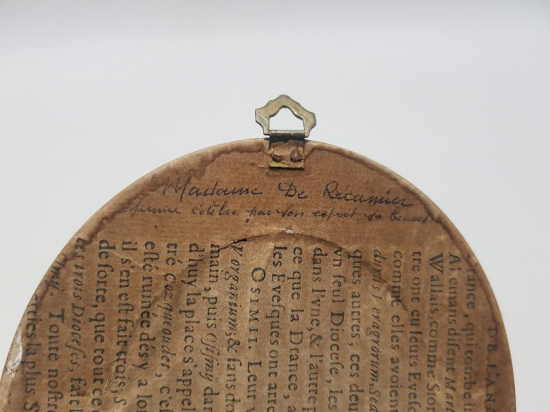 Madame De Récamier
femme célèbre par son esprit sa beauté
DE L'AN
Drance, qui tombe
Wallais comme Sio
tre ont eu leurs Eves
comme elles avoien
ques autres, ces deu
vn seul Diocese, les
dans l'vne, & l'autre
ce que la Drance, a
les Evesques ont arre
OSIMII. Leur v
Vorganium, & sans do
main, puis
d'huy la place s'appel
tré Cozqeoudet, c'e
esté ruinée dés y a lo
il s'en est fait trois, s
de sorte, que tout ce
ces trois Dioceses,
smij. Toute nostre
tres la plus S